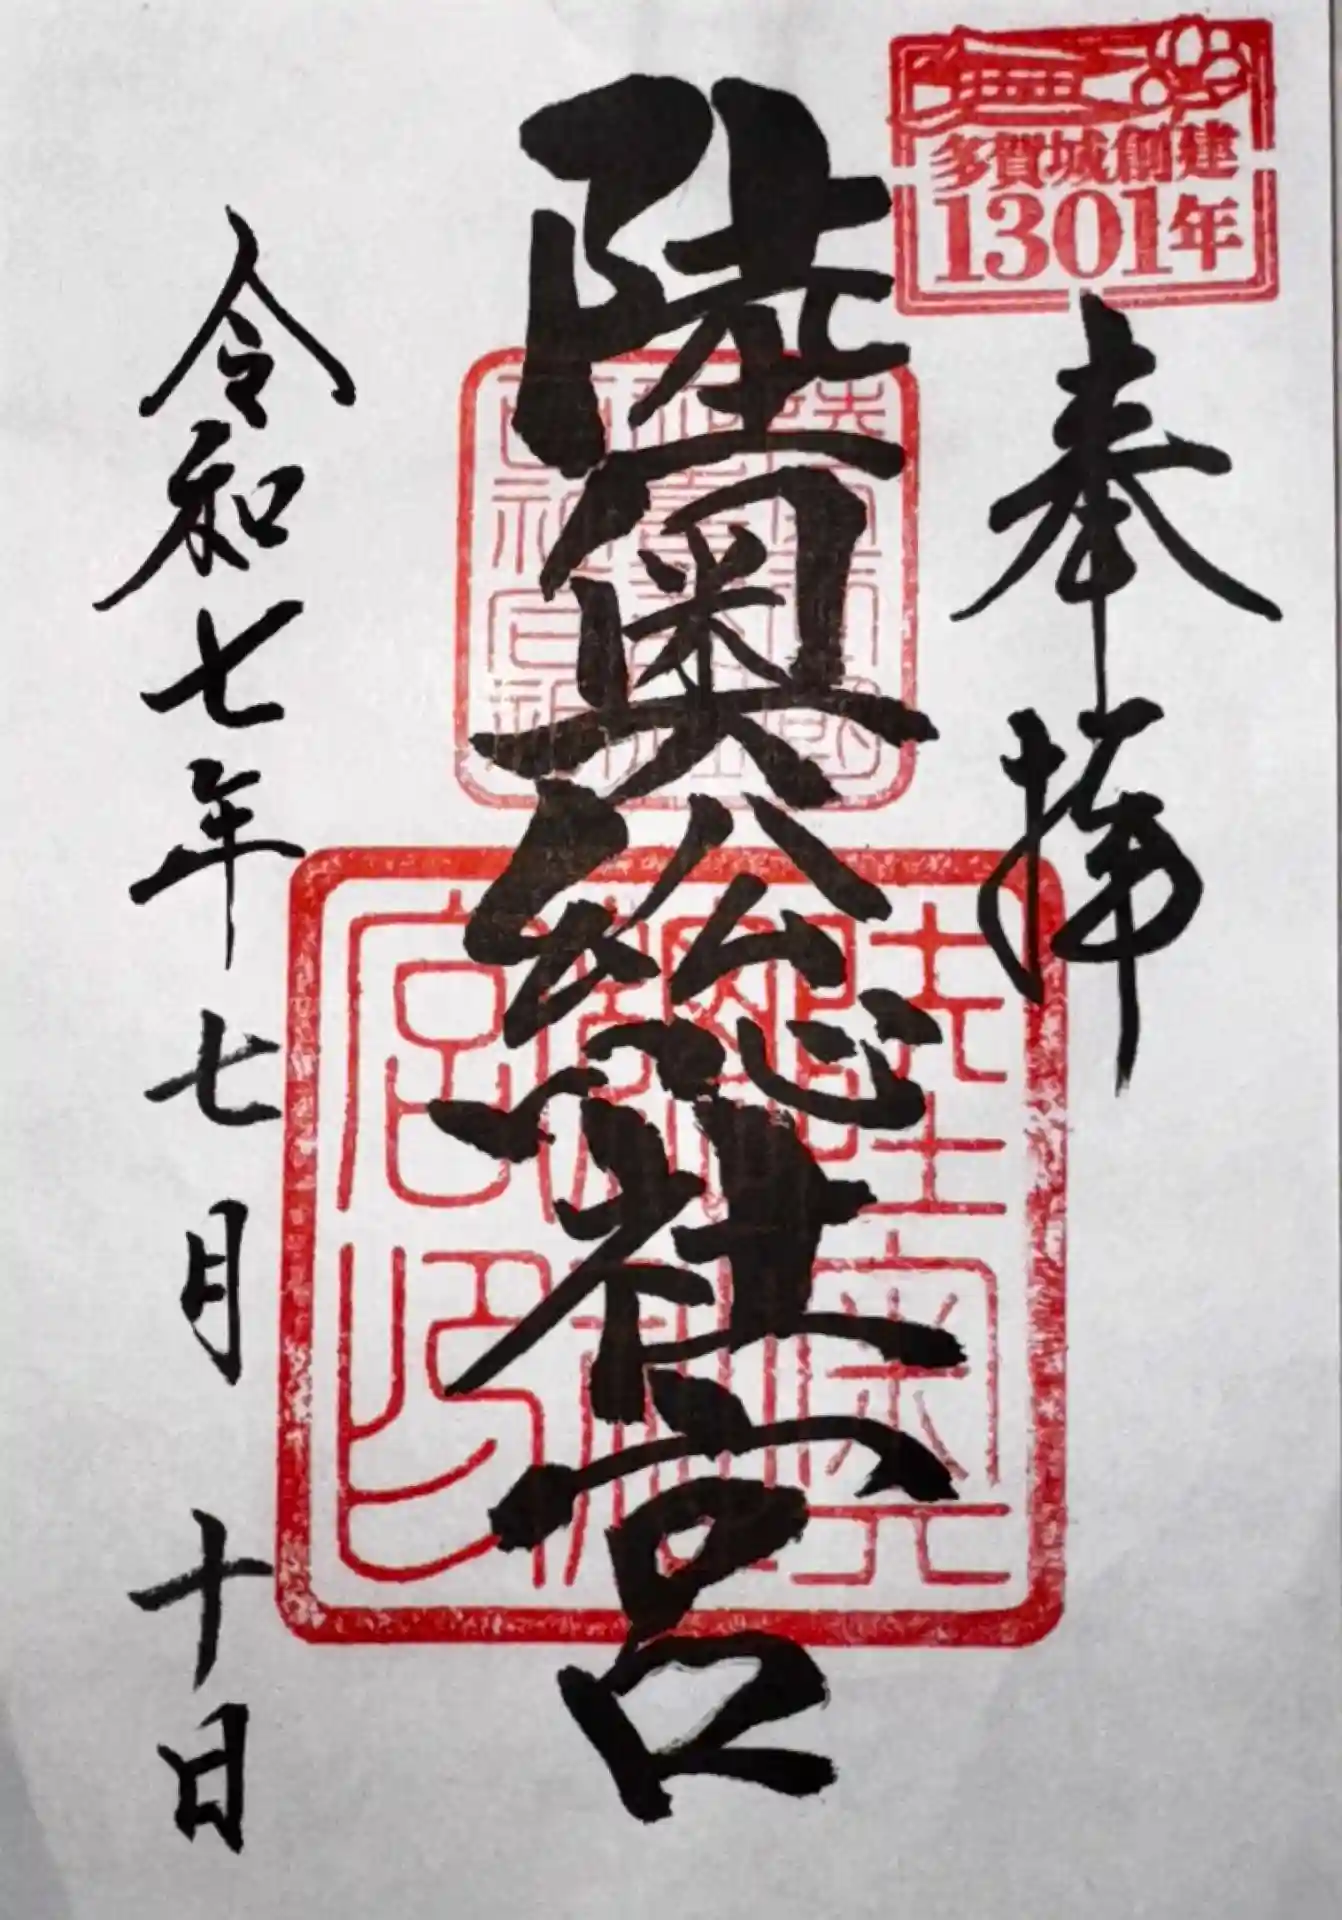 多賀城創建
1301年
奉拝
陸奥総社宮
陸奥総社宮印
令和七年七月十日